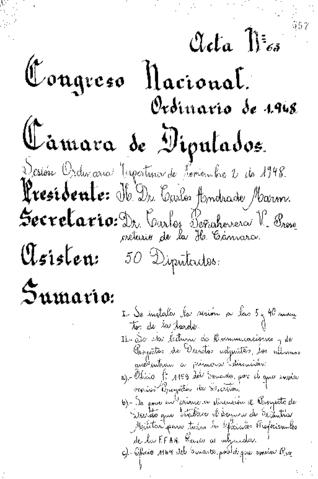 357
Acta Nº 63
Congreso Nacional.
Ordinario de 1.948.
Càmara de Diputados.
Sesión Ordinaria Vespertina de Noviembre 2 de 1948.
Presidente: H. Dr. Carlos Andrade Marín.
Secretario: Dr. Carlos Peñaherrera V. Prose
cretario de la H. Cámara.
Asisten: 50 Diputados.
Sumario:
I.- Se instala la sesión a las 5 y 40 minu
tos de la tarde.
II.- Se da lectura de Comunicaciones y de
Proyectos de Decretos siguientes, los mismos
que entran a primera discusión:
a).- Oficio Nº 1159 del Senado, por el que envía
varios Proyectos de Decretos.
b).- Se pone en primera discusión el Proyecto de
Decreto que establece el Seguro de
Militar para todos los Oficiales Profesionales
de la FF.AA.
c).- Oficio 1164 del Senado, por el que envía